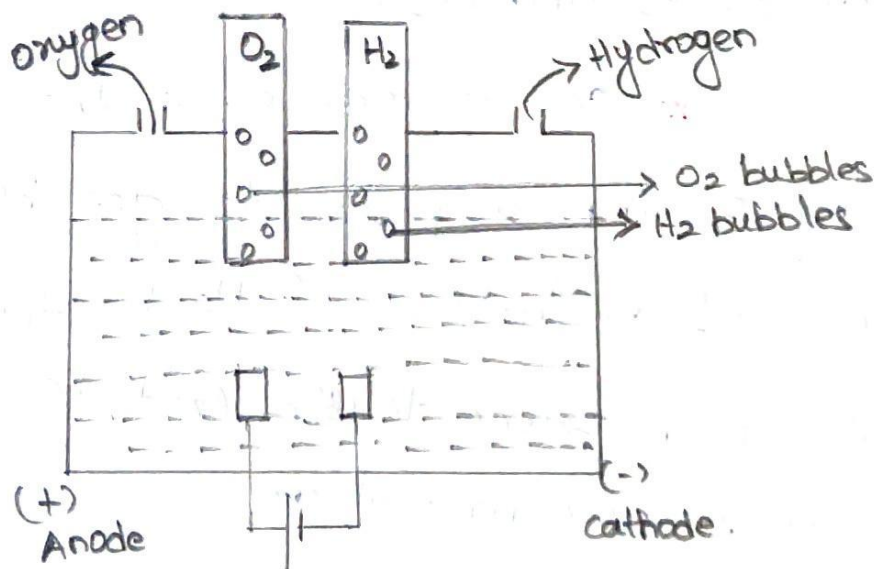 oxygen
O2
H2
Hydrogen
O2 bubbles
H2 bubbles
(+)
Anode
(-)
cathode.